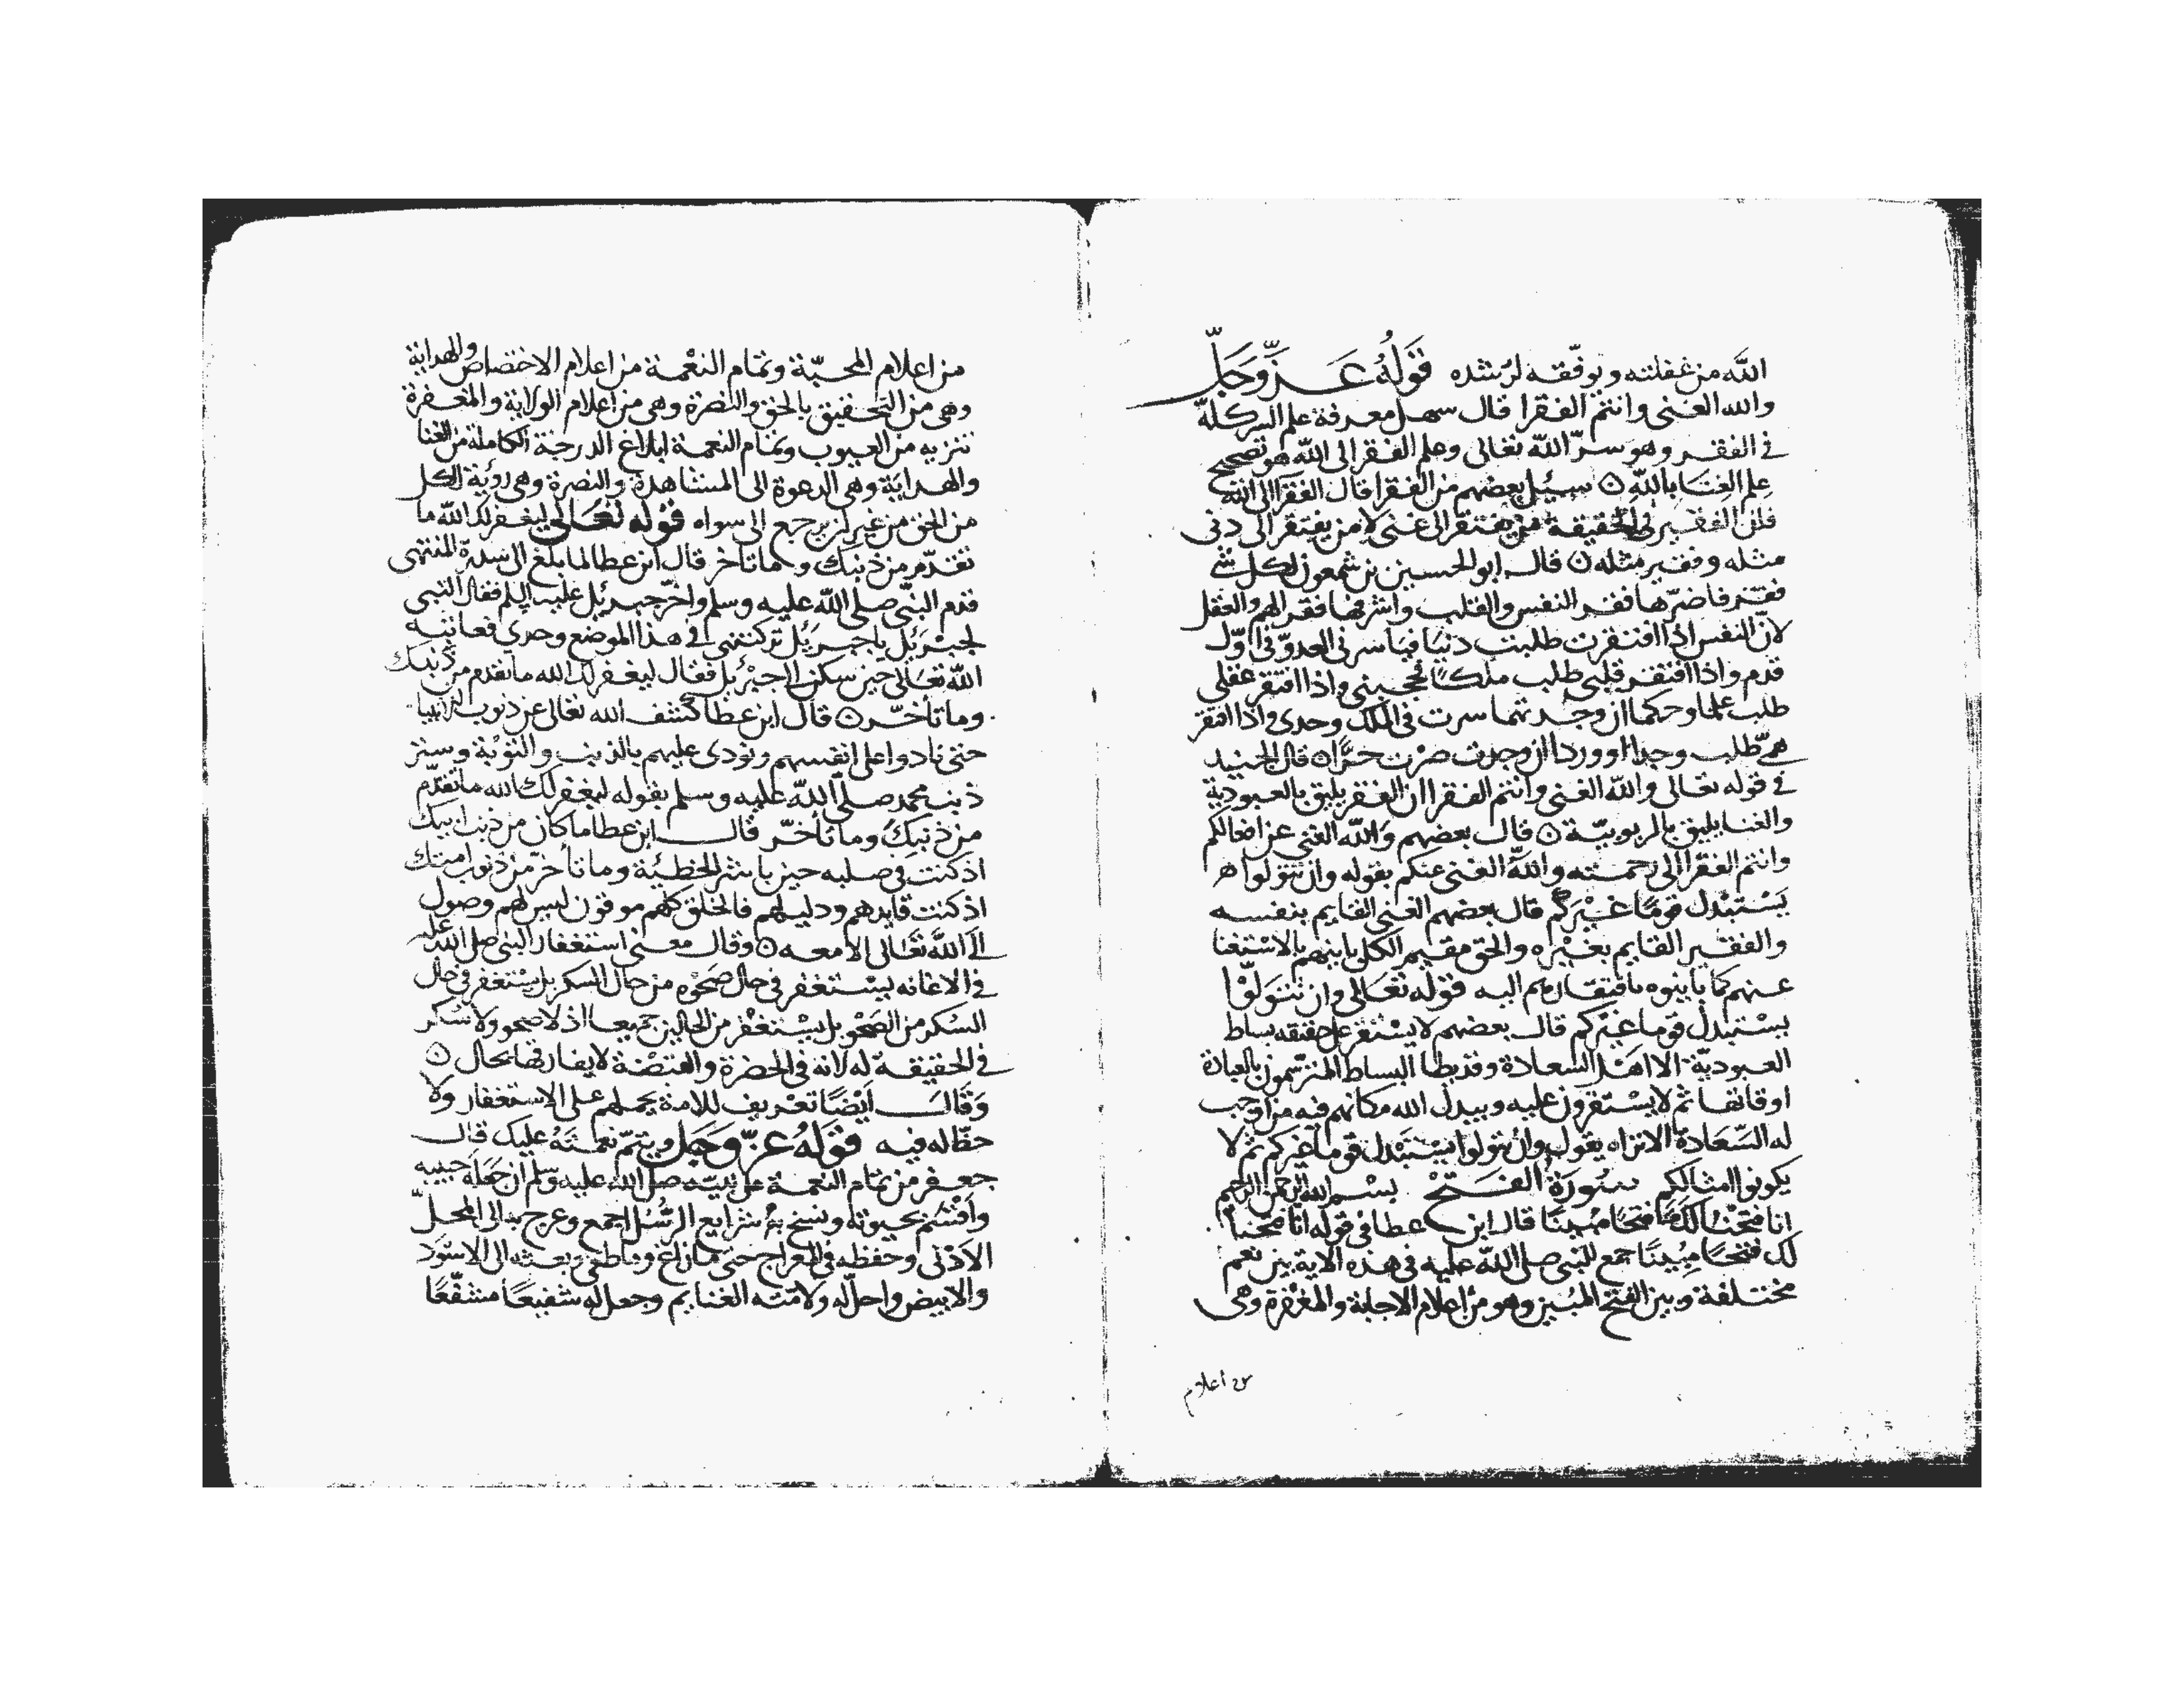 الله من غفلته ويوفّقه لرُشده قَولُهُ عَزَّوَجَلّ
والله الغنى وانتم الفقرا قال سهل معرفة علم السر كله
فى الفقر وهو سرّ الله تعالى وعلم الفقر الى الله هو تصحيح
علم الغِنَا بالله ه سيُل بعضهم من الفقرا قال الفقرا الى الله
فان الفقير فى الحقيقة من يفتقر الى غنى لا من يفتقر الى دنى
مثله وفقير مثله ه قال ابو الحسين بن شمعون لكل شئ
فقر فاضرّها فقر النفس والقلب واشرفها فقر الهم والعقل
لان النفس اذا افتقرت طلبت دنيا فياسرنى العدوّ فى اوّل
قدم واذا افتقر قلبى طلب ملكا يحجبنى واذا افتقر عقلى
طلب علما وحكما ان وجدتهما سرت فى الملك وحدى واذا افتقر
همّى طلب وجدا او وردا ان وجدت صرْت حرًّا ه قال الجنيد
فى قوله تعالى والله الغنى وانتم الفقرا ان الفقر يليق بالعبودية
والغنا يليق بالربوبيّة ه قال بعضهم وَالله الغنى عن افعالكم
وانتم الفقرا الى رحمته والله الغنى عنكم بقوله وان تتولوا ه
يَسْتبْدل قومًا غيْرَكم قال بعضهم الغنى القايم بنفسه
والفقير القايم بغيْره والحق مقيم الكل باينهم بالاسْتغنا
عنهم كما باينوه بافتقارهم اليه قوله تعَالى وان تتوَلوْا
يسْتبدل قوما غيركم قال بعضهم لا يسْتقر على حقيقه بساط
العبوديّة الا اهْل السعادة وقد يطا البساط المترسّمون بالعبادة
اوقاتها ثم لا يسْتقرون عليه ويبدل الله مكانهم فيه من اوجب
له السّعَادة الا تراه يقول وان تتولوا يسْتبدل قوما غيركم ثم لا
يكونوا امثالكم سُورَة الفَتحْ بسْم الله الرحمن الرحيم
انا فتحْنا لكَ فتحًا مُبينًا قال ابن عطا فى قوله انا فتحنا
لك فتحًا مبُينًا جمع للنبى صلى الله عليه فى هذه الاية بين نعم
مختلفة وبين الفتح المبُين وهو من اعلام الاجابة والمغْفرة وهى
من اعلام
من اعلام المحبّة وتمام النعْمة من اعلام الاختصاص والهداية
وهى من التحقيق بالحق والنصْرة وهى من اعلام الولاية والمغفرة
تنزيه من العيوب وتمام النعمة ابلاغ الدرجة الكاملة من الغنا
والهداية وهى الدعوة الى المشاهدة والنصرة وهى رؤية الكل
من الحق من غير ان يرجع الى سواه قوله تعَالى ليغفر لك الله ما
تقدّم من ذنبك وما تاخر قال ابن عطا لما بلغ الى سدرة المنتهى
قدم النبّى صلى الله عليه وسلم واخّر جبرئل عليه السلم فقال النبى
لجبْرَئل يا جبرَئل تركتنى فى هذا الموضع وحدى فعاتبه
الله تعَالى حين سكن الى جبْرئل فقال ليغفر لك الله ما تقدم من ذنبك
وما تأخّر ه قال ابن عطا كشف الله تعالى عن ذنوب الانبيا
حتى نادوا على انفسهم ونودى عليهم بالذنب والتوْبة وستر
ذنب محمد صلى الله عليه وسلم بقوله ليغفر لك الله ما تقدّم
من ذنبكَ وما تأخّر قال ابن عطا ما كان من ذنب ابيك
اذ كنت فى صلبه حين باشر الخطيْة وما تأخر من ذنوب امتك
اذ كنت قايدهم ودليلهم فالخلق كلهم موقون ليس لهم وصول
الَى الله تعَالى الا معه ه وقال معنى استغفار النبى صلى الله عليه
فى الاغانه يسْتغفر فى حال صَحْوه من حال السكر بل يسْتغفر فى حال
السُكر من الصَحْو بل يسْتغفر من الحالين جميعا اذ لا صحو ولا سُكر
فى الحقيقة له لانه فى الحضرة والقبْضة لا يفارقها بحال ه
وَقَالَ ايَضًا تعْريف للامة يحملهم على الاستغفار ولا
حظّا له فيه قَولهُ عزّ وجَل ويتمّ نعمتَهُ عليك قال
جعفر من تمام النعمة على نبيّه صلى الله عليه وسلم ان جَعَله حبيبه
واقْسَم بحيوته ونسخ به شرايع الرسُل اجمع وعرج به الى المحلّ
الادْنى وحفظه فى المعراج حتى ما زاغ وما طغى وبعثه الى الاسْوَد
والابيض واحلّ له ولامّته الغنايم وجعل له شفيعًا مشفّعًا